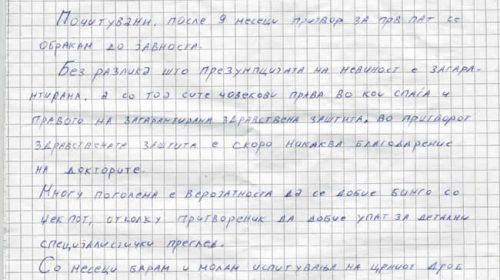 Почитувани, после 9 месеци притвор за прв пат се
обраќам до јавноста.
Без разлика што презумпцијата на невиност е загара-
нтирана, а со тоа сите човекови права во кои спаѓа и
правото на загарантирана здравствена заштита. Во притворот
здравствената заштита е скоро никаква благодарение
на докторите.
Многу поголема е веројатноста да се добие бинго со
џекпот, отколку притвореник да добие упат за детални
специјалистички преглед.
Со месеци барам и молам испитување на црниот дроб